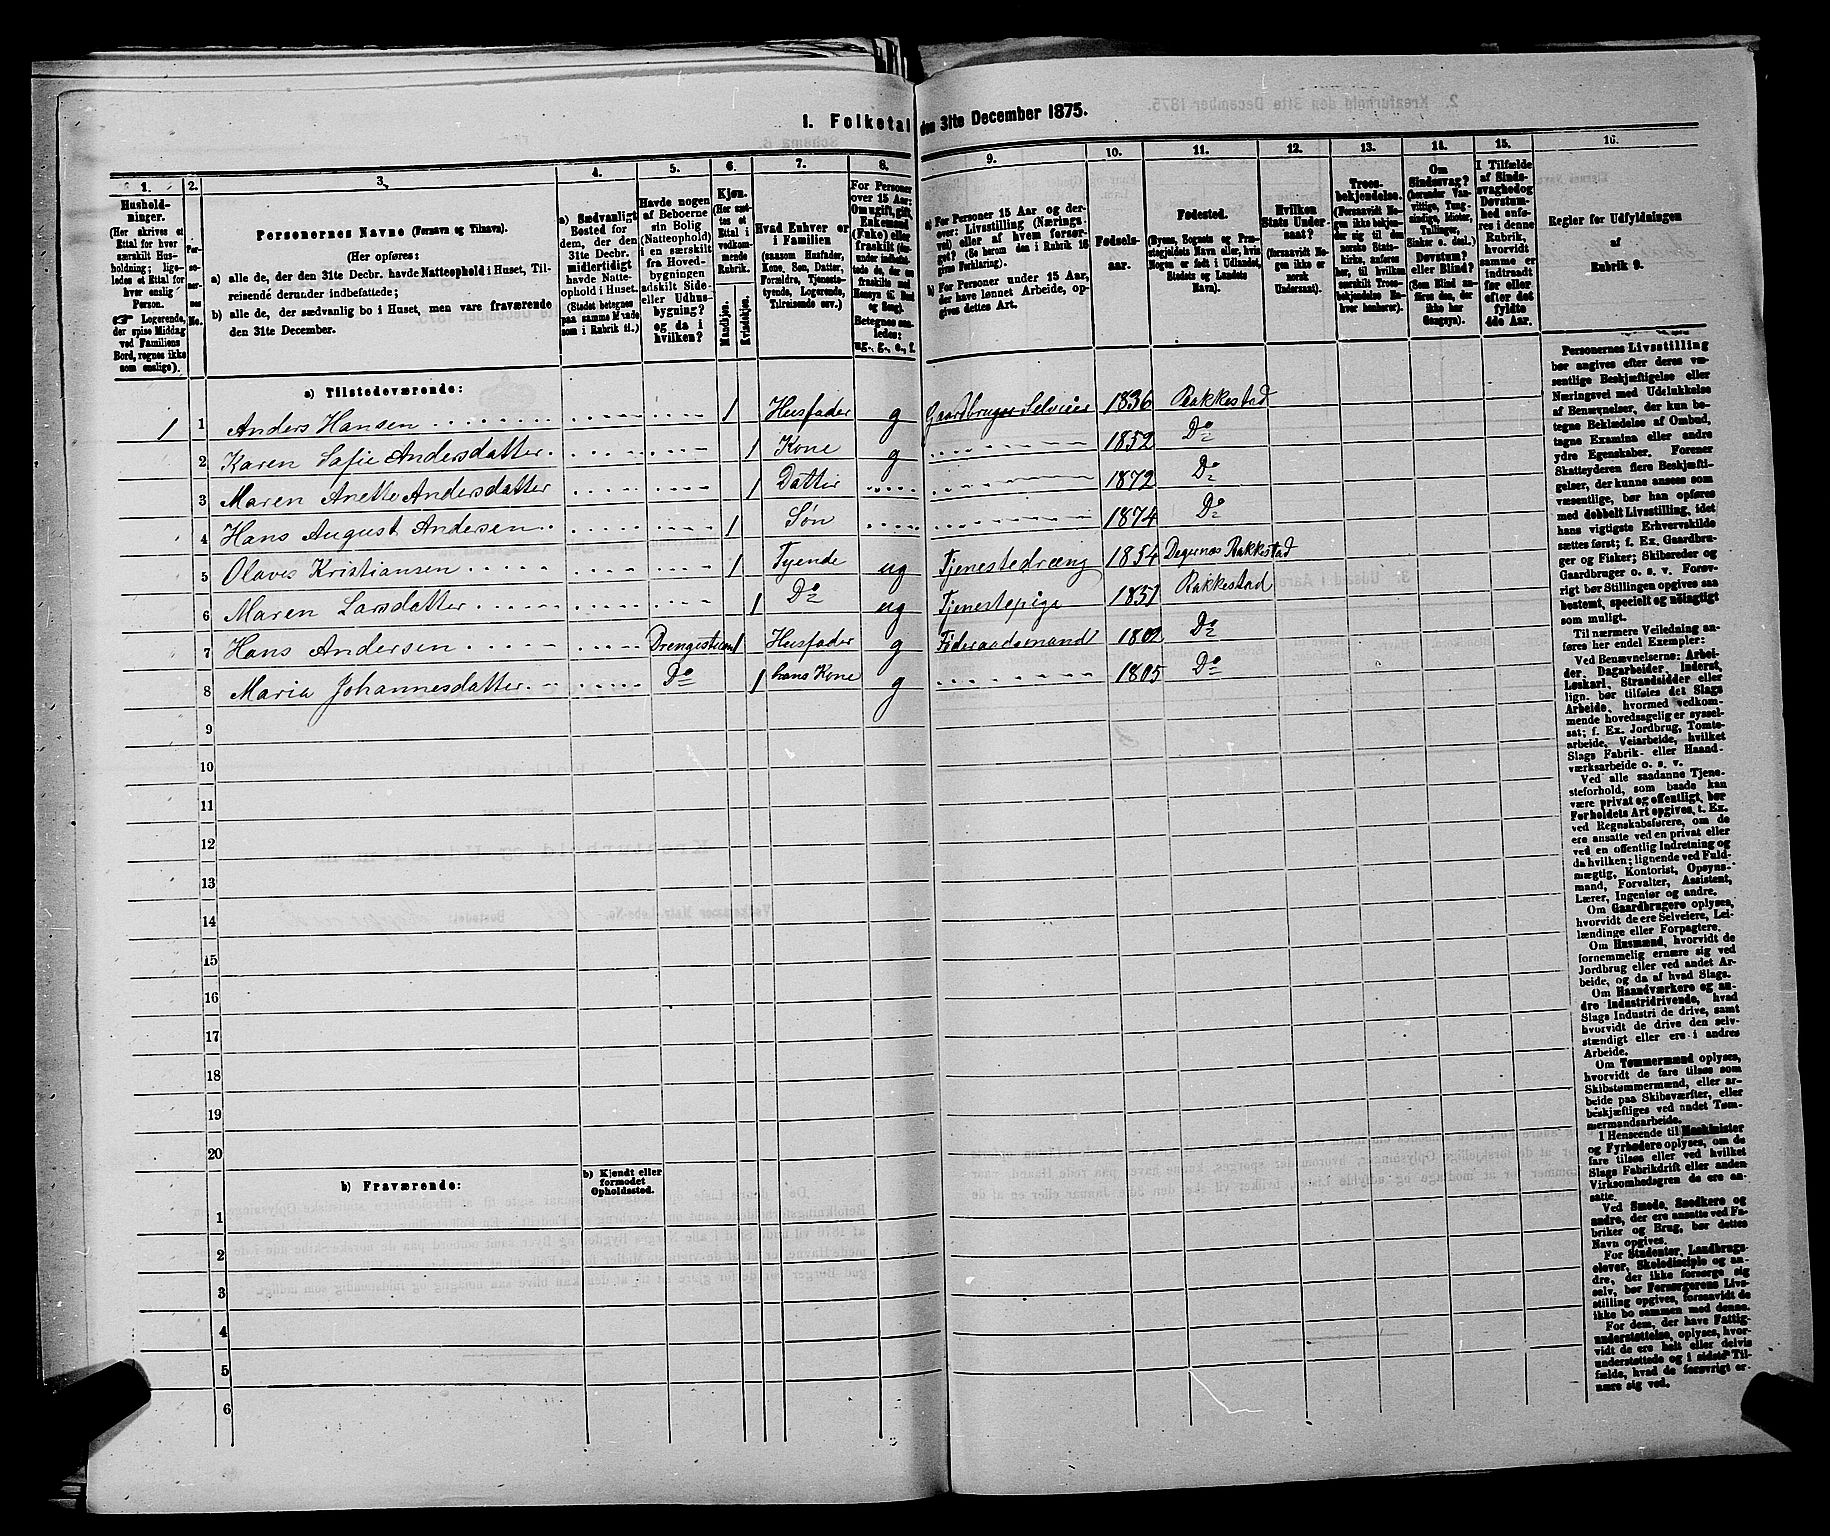 1. Folketal den 31te December 1875.
1. 2. 3. 4. 5. 6. 7. 8. 9. 10. 11. 12. 13. 14. 15. 16.
Hushold-
ninger.
(Her skrives et
Ettal for hver
særskilt Hus-
holdning; lige-
ledes et Ettal for
hver enslig
Person.
☞ Logerende,
der spise Middag
ved Familiens
Bord, regnes ikke
som enslige).
Per-
so-
ner-
nes
No.
Personernes Navne (Fornavn og Tilnavn).
(Her opføres:
a) alle de, der den 31te Decbr. havde Natteophold i Huset, Til-
reisende derunder indbefattede;
b) alle de, der sædvanlig bo i Huset, men vare fraværende
den 31te December.
a) Sædvanligt
Bosted for
dem, der den
31te Decbr.
midlertidigt
havde Natte-
ophold i Huset.
(Stedet betegnes
paa samme Maade
som i Rubrik 11.)
Havde nogen
af Beboerne
sin Bolig
(Natteophold)
i en særskilt
fra Hoved-
bygningen
adskilt Side-
eller Udhus-
bygning?
og da i
hvilken?
Kjøn.
(Her sæt-
tes et
Ettal i
vedkom-
mende
Rubrik.
Mandkjøn.
Kvindekjøn.
Hvad Enhver er
i Familien
(saasom Husfader,
Kone, Søn, Datter,
Forældre, Tjeneste-
tyende, Logerende,
Tilreisende osv.)
For Personer
over 15 Aar:
Om ugift, gift,
Enkemand
(Enke) eller
fraskilt
Betegnes saa-
ledes:
ug., g., e., f.
a) For Personer 15 Aar og der-
over: Livsstilling (Nærings-
vei) eller af hvem forsør-
get? (Se herom den i Rubrik 16
givne Forklaring).
b) For Personer under 15 Aar,
der have lønnet Arbeide, op-
gives dettes Art.
Fødsels-
aar.
Fødested.
(Byens, Sognets og Præ-
stegjeldets Navn eller, hvis
Nogen er født i Udlandet,
Stedets og Landets
Navn).
Hvilken
Stats Under-
saat?
(forsaavidt No-
gen ikke er
norsk
Undersaat).
Troes-
bekjendelse.
(Forsaavidt No-
gen ikke bekjen-
der sig til den
norske Stats-
kirke, anføres
her, til hvilket
særskilt Troes-
bekjendelse En-
hver henhører).
Om
Sindssvag?
(herunder Van-
vittige, Tung-
sindige, Idioter,
Tullinger,
Sinker o. desl.)
Døvstum?
eller Blind?
(Som Blind an-
føres den, der
ikke har
Gangsyn).
I Tilfælde
af Sinds-
svaghed og
Døvstum-
hed anfø-
res i denne
Rubrik,
hvorvidt
samme er
indtraadt
før eller
efter det
fyldte
4de Aar.
Regler for Udfyldningen
af
Rubrik 9.
a) Tilstedeværende:
1 1 Anders Hansen 1 Husfader g Gaardbruger Selveier 1836 Rakkestad
2 Karen Sofie Andersdatter 1 Kone g 1852 Do
3 Maren Anette Andersdatter 1 Datter 1872 Do
4 Hans August Andersen 1 Søn 1874 Do
5 Olaves Kristiansen 1 Tyende ug Tjenestedræng 1854 Degernes Rakkestad
6 Maren Larsdatter 1 Do ug Tjenestepige 1857 Rakkestad
7 Hans Andersen Drengestuen 1 Husfader g Føderaadsmand 1802 Do
8 Maria Johannesdatter Do 1 hans Kone g 1805 Do
9
10
11
12
13
14
15
16
17
18
19
20
b) Fraværende:
b) Kjendt eller
formodet
Opholdssted.
1
2
3
4
5
6
Personernes Livsstilling
bør angives efter deres væ-
sentlige Beskjæftigelse eller
Næringsvei med Udelukkelse
af Benævnelser, der kun be-
tegne Beklædelse af Ombud,
tagne Examina eller andre
ydre Egenskaber. Forener
Skatteyderen flere Beskjæfti-
gelser, der kunne ansees som
væsentlige, bør han opføres
med dobbelt Livsstilling, idet
hans vigtigste Erhvervskilde
sættes først; f. Ex. Gaardbru-
ger og Fisker; Skibsreder og
Gaardbruger o. s. v. Forøv-
rigt bør Stillingen opgives saa
bestemt, specielt og nøiagtigt
som muligt.
Til nærmere Veiledning an-
føres her endel Exempler:
Ved Benævnelserne: Arbei-
der, Dagarbeider, Inderst,
Løskarl, Strandsidder eller
lign. bør tilføies det Slags
Arbeide, hvormed vedkom-
mende hovedsagelig er syssel-
sat; f. Ex. Jordbrug, Tomte-
arbeide, Veiarbeide, hvilket
Slags Fabrik- eller Haand-
værksarbeide o. s. v.
Ved alle saadanne Tjene-
steforhold, som baade kan
være privat og offentligt, bør
Forholdets Art opgives, t. Ex.
ved Regnskabsførere, om de
ere ansatte ved en privat eller
ved en offentlig Indretning og
da hvilken; lignende ved Fuld-
mægtig, Kontorist, Opsyns-
mand, Forvalter, Assistent,
Lærer, Ingeniør og andre.
Om Gaardbrugere oplyses,
hvorvidt de ere Selveiere, Lei-
lændinge eller Forpagtere.
Om Husmænd, hvorvidt de
fornemmelig ernære sig ved
Jordbrug eller ved andet Ar-
beide, og da af hvad Slags.
Om Haandværkere og an-
dre Industridrivende, hvad
Slags Industri de drive, samt
hvorvidt de drive den selv-
stændigt eller ere i andres
Arbeide.
Om Tømmermænd oplyses,
hvorvidt de fare tilsøs som
Skibstømmermænd, eller ar-
beide paa Skibsværfter, eller
beskjæftiges ved andet Tøm-
mermandsarbeide.
I Henseende til Maskinister
og Fyrbødere oplyses, om de
fare tilsøs eller ved hvilket
Slags Fabrikdrift eller anden
Virksomhedsgren de ere an-
satte.
Ved Smede, Snedkere og
andre, der ere ansatte ved Fa-
briker og Brug, bør dettes
Navn opgives.
For Studenter, Landbrugs-
elever, Skoledisciple og an-
dre, der ikke forsørge sig
selv, bør Forsørgerens Livs-
stilling opgives, forsaavidt de
ikke bo sammen med denne.
For dem, der have Fattig-
understøttelse, oplyses, hvor-
vidt de ere helt eller delvis
understøttede og i sidste Til-
fælde, hvad de forøvrigt er-
nære sig ved.